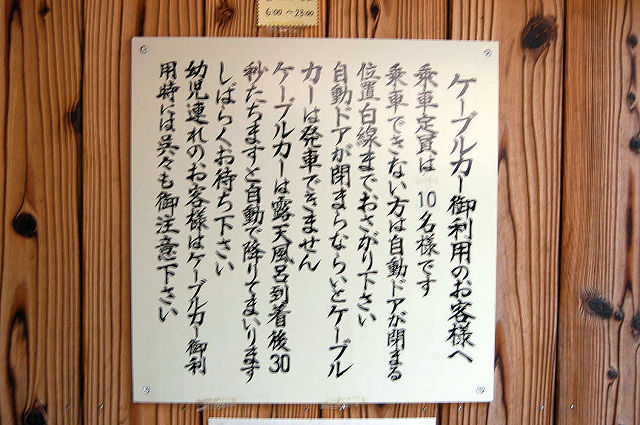 6:00～23:00
ケーブルカー御利用のお客様へ
乗車定員は 10名様です
乗車できない方は自動ドアが閉まる
位置白線までおさがり下さい
自動ドアが閉まらならいとケーブル
カーは発車できません
ケーブルカーは露天風呂到着後30
秒たちますと自動で降りてまいります
しばらくお待ち下さい
幼児連れのお客様はケーブルカー御利
用時には呉々も御注意下さい